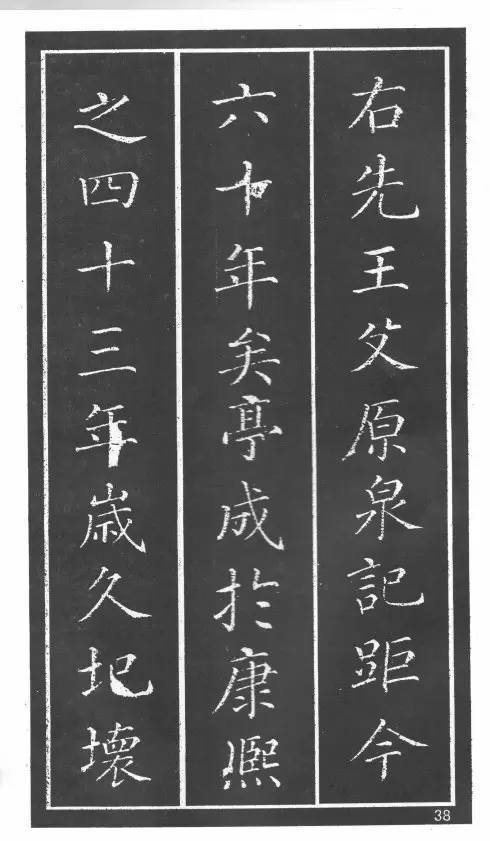 右先王父原泉記距今
六十年矣亭成於康熙
之四十三年歲久圮壞
38